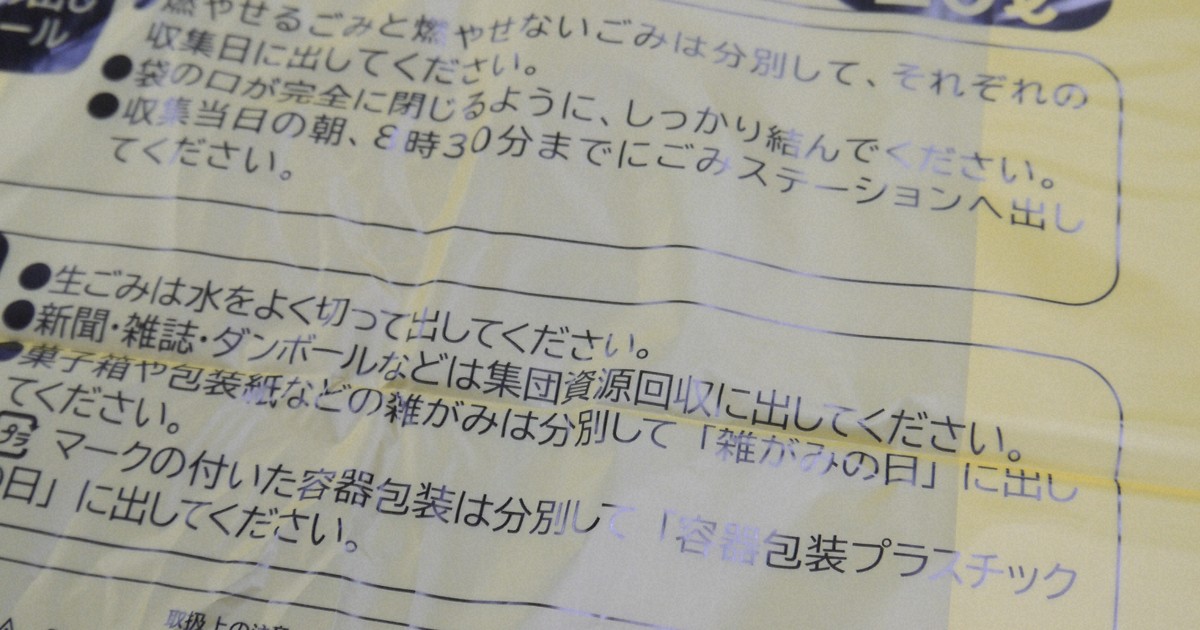 ール
20ℓ
燃やせるごみと燃やせないごみは分別して、それぞれの
収集日に出してください。
●袋の口が完全に閉じるように、しっかり結んでください。
●収集当日の朝、8時30分までにごみステーションへ出し
てください。
●生ごみは水をよく切って出してください。
●新聞・雑誌・ダンボールなどは集団資源回収に出してください。
●菓子箱や包装紙などの雑がみは分別して「雑がみの日」に出し
てください。
プラ マークの付いた容器包装は分別して「容器包装プラスチック
の日」に出してください。
取扱上の注意